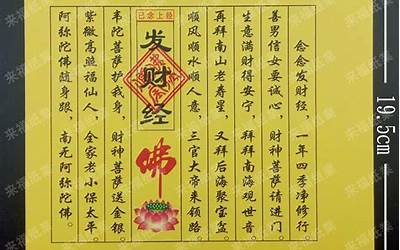 念念发财经，一年四季净修行。
善男信女要诚心，财神菩萨请进门。
生意满财得安宁，拜拜南海观世音
再拜南山老寿星，又拜后海聚宝盆。
顺风顺水顺人意，三官大帝来领路
已念上经
发财经
佛
韦陀菩萨护我身，财神菩萨送金银
紫微高照福仙人，全家老小保太平
阿弥陀佛随身跟，南无阿弥陀佛。
19.5cm